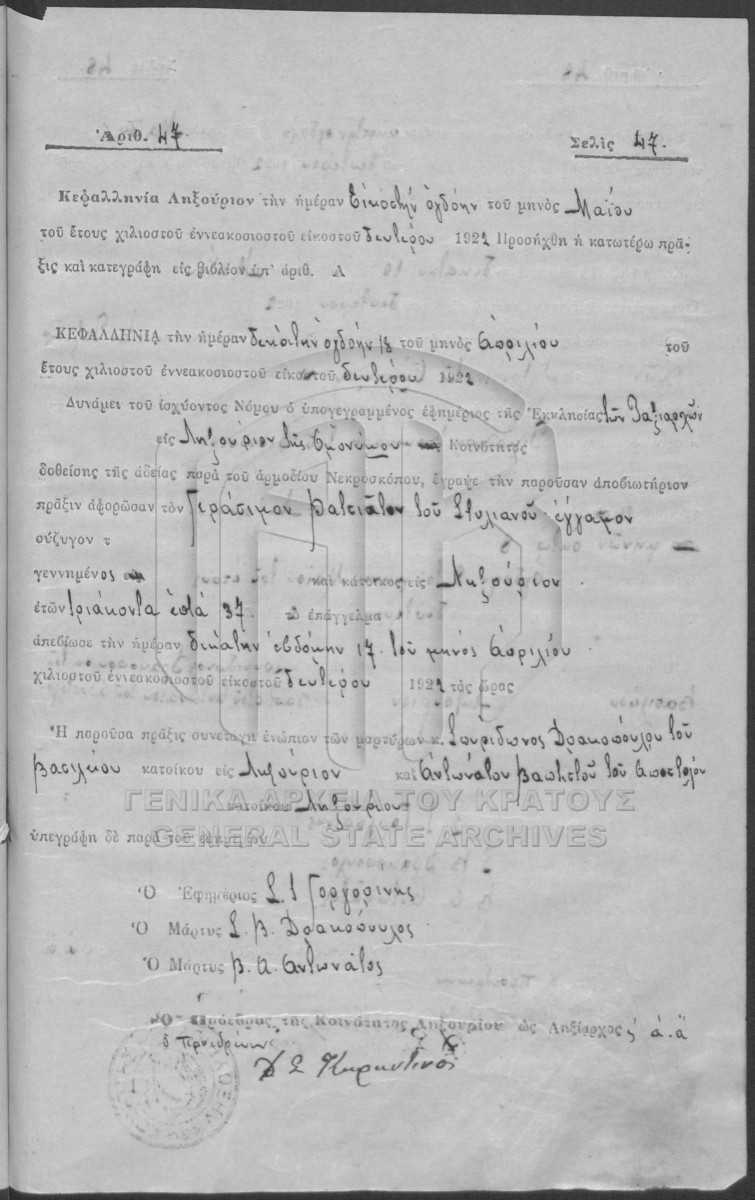 Ἀριθ. 47
Σελὶς 47.
Κεφαλληνία Ληξούριον τὴν ἡμέραν Εἰκοστὴν ὀγδόην τοῦ μηνὸς Μαΐου
τοῦ ἔτους χιλιοστοῦ ἐννεακοσιοστοῦ εἰκοστοῦ δευτέρου 1922 Προσήχθη ἡ κατωτέρω πρᾶ-
ξις καὶ κατεγράφη εἰς βιβλίον ὑπ' ἀριθ. Α
ΚΕΦΑΛΛΗΝΙΑ τὴν ἡμέραν δεκάτην ὀγδόην 18 τοῦ μηνὸς Ἀπριλίου τοῦ
ἔτους χιλιοστοῦ ἐννεακοσιοστοῦ εἰκοστοῦ δευτέρου 1922
Δυνάμει τοῦ ἰσχύοντος Νόμου ὁ ὑπογεγραμμένος ἐφημέριος τῆς Ἐκκλησίας τῶν Ταξιαρχῶν
εἰς Ληξούριον τῆς Κοινότητος
δοθείσης τῆς ἀδείας παρὰ τοῦ ἁρμοδίου Νεκροσκόπου, ἔγραψε τὴν παροῦσαν ἀποβιωτήριον
πρᾶξιν ἀφορῶσαν τὸν Γεράσιμον Βατσιάτον τοῦ Στυλιανοῦ ἔγγαμον
σύζυγον τ
γεννημένος καὶ κάτοικος εἰς Ληξούριον
ἐτῶν τριάκοντα ἑπτά 37 τὸ ἐπάγγελμα
ἀπεβίωσε τὴν ἡμέραν δεκάτην ἑβδόμην 17 τοῦ μηνὸς Ἀπριλίου
χιλιοστοῦ ἐννεακοσιοστοῦ εἰκοστοῦ δευτέρου 1922 τὰς ὥρας
Ἡ παροῦσα πρᾶξις συνετάγη ἐνώπιον τῶν μαρτύρων κ. Σπυρίδωνος Δρακοπούλου τοῦ
Βασιλείου κατοίκου εἰς Ληξούριον καὶ Ἀντωνάτον Βαπτιστοῦ τοῦ Ἀποστόλου
κατοίκου Ληξούριον
ΓΕΝΙΚΑ ΑΡΧΕΙΑ ΤΟΥ ΚΡΑΤΟΥΣ
GENERAL STATE ARCHIVES
ὑπεγράφη δὲ παρὰ τοῦ ἐφημερίου
Ὁ Ἐφημέριος Σ. Ι Γοργορίνης
Ὁ Μάρτυς Σ. Β. Δρακόπουλος
Ὁ Μάρτυς Β. Α. Ἀντωνάτος
Ὁ Πρόεδρος τῆς Κοινότητος Ληξουρίου ὡς Ληξίαρχος
ὁ Προεδρεύων